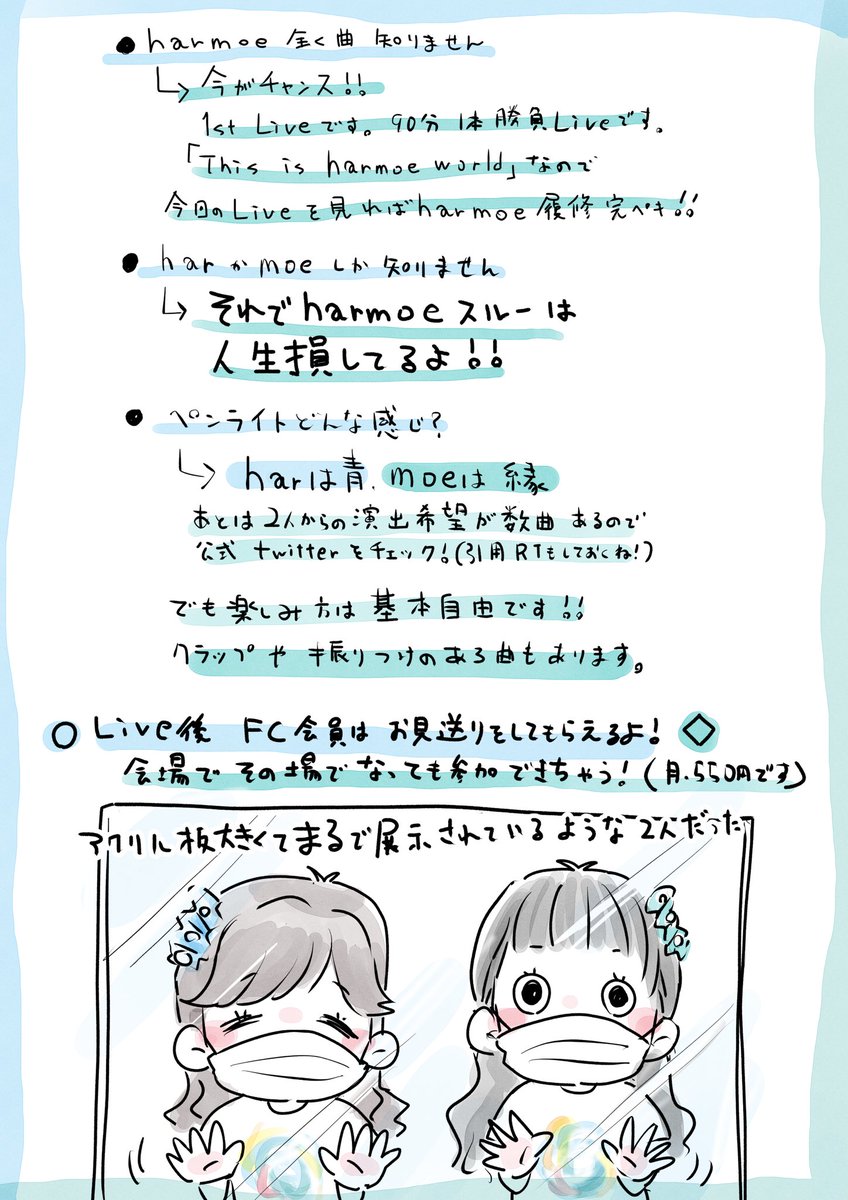 ●harmoe 全く曲 知りません
↳今がチャンス!!
1st Liveです。90分 1本勝負Liveです。
「This is harmoe world」なので
今回のLiveを見ればharmoe履修完ペキ!!
●harかmoeしか知りません
↳それでharmoeスルーは
人生損してるよ!!
●ペンライトどんな感じ?
↳harは青、moeは緑
あとは2人からの演出希望が数曲あるので
公式twitterをチェック!(引用RTもしておくね!)
でも楽しみ方は基本自由です!!
クラップや振りつけのある曲もあります。
○Live後 FC会員はお見送りをしてもらえるよ!◇
会場でその場でなっても参加できちゃう!(月.550円です)
アクリル板大きくてまるで展示されているような2人だった